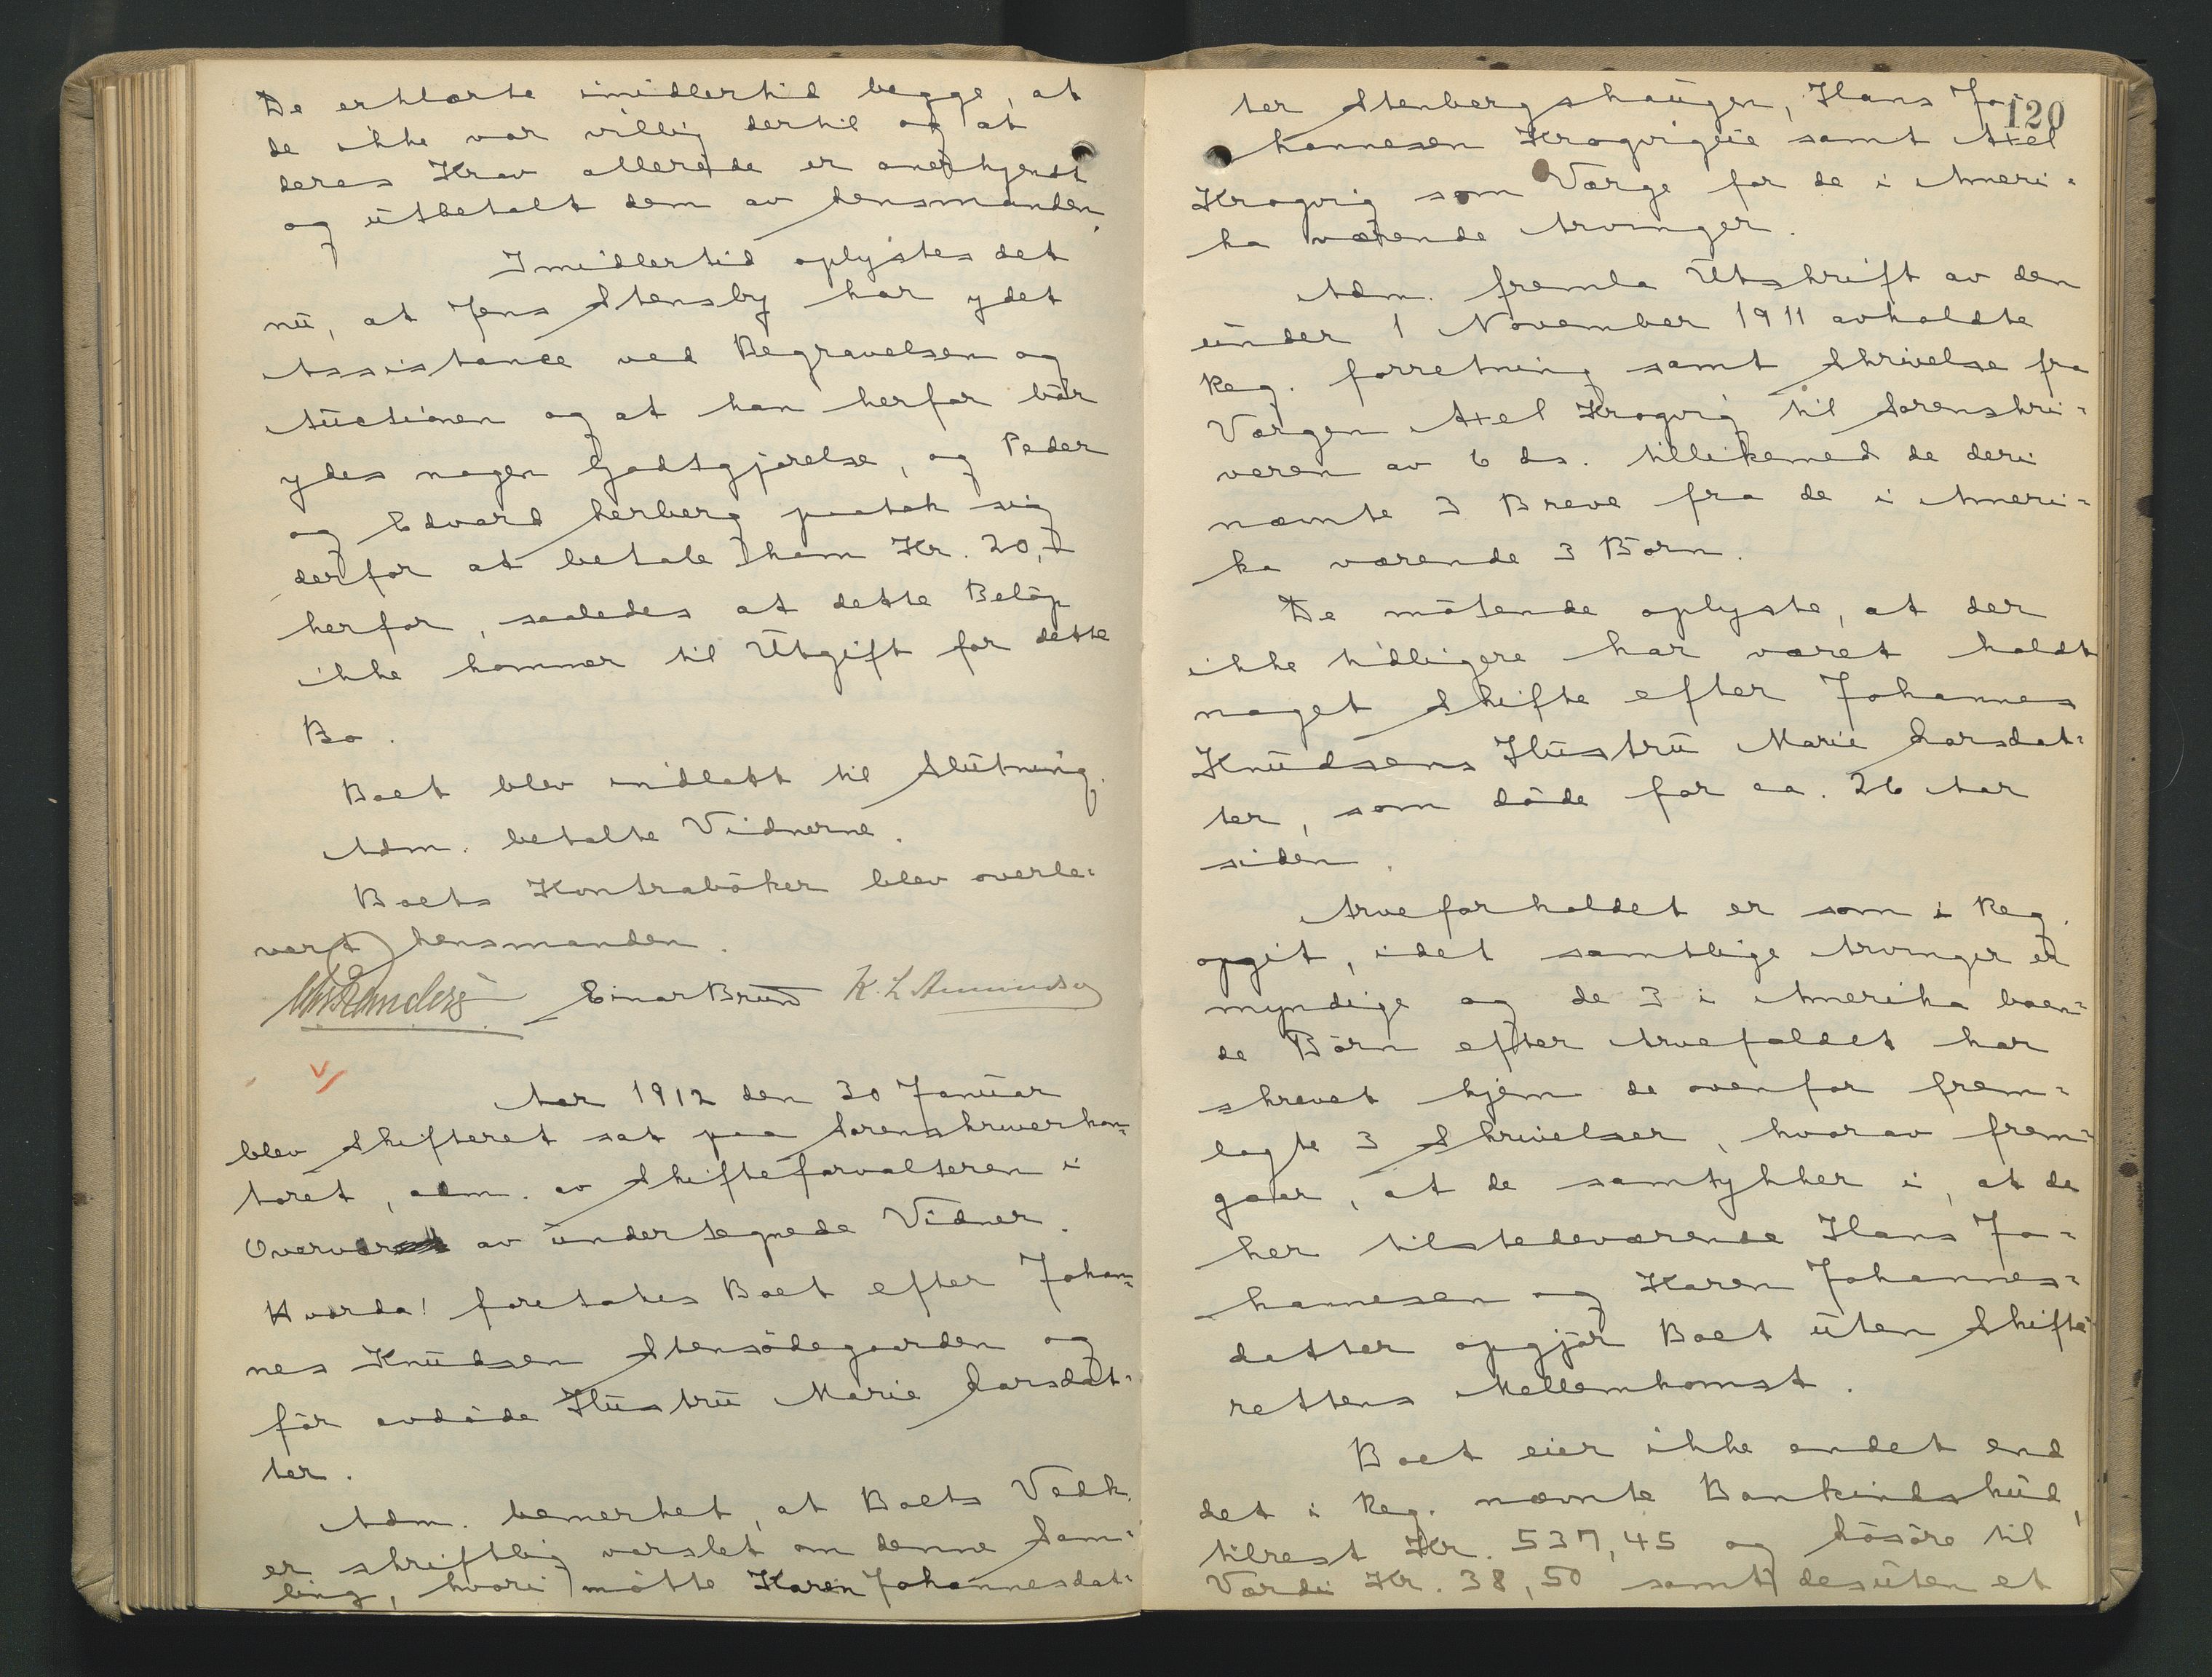 De erklærte imidlertid begge, at
de ikke var villig dertil og at
deres Krav allerede er anerkjendt
og utbetalt dem av Lensmanden.
Imidlertid oplystes det
nu, at Jens Stensby har ydet
Assistance ved Begravelsen og
Auctionen og at han herfor bør
ydes nogen Godtgjørelse, og Peder
og Edvard Lerberg paatok sig
derfor at betale ham Kr. 20,-
herfor, saaledes at dette Beløp
ikke kommer til Utgift for dette
Bo.
Boet blev indlatt til Slutning.
Adm. betalte Vidnerne.
Boets Kontrabøker blev overle-
vert Lensmanden.
Einar Bruun K. L. Amundsen
Aar 1912 den 30 Januar
blev Skifteret sat paa Sorenskriverkon-
toret, adm. av Skifteforvalteren i
Overvær av undertegnede Vidner.
Hvorda! foretages Boet efter Johan-
nes Knudsen Stensødegaarden og
før avdøde Hustru Marie Larsdat-
ter.
Adm. bemerket, at Boets Vedk.
er skriftlig varslet om denne Sam-
ling, hvori møtte Karen Johannesdat-
120
ter Stenbergshaugen, Hans Jo-
hannesen Krogvigeie samt Axel
Krogvig som Værge for de i Ameri-
ka værende Arvinger.
Adm. fremla Utskrift av den
under 1 November 1911 avholdte
Reg. forretning samt Skrivelse fra
Værgen Axel Krogvig til Sorenskri-
veren av 6 ds. tillikemed de deri
nævnte 3 Breve fra de i Ameri-
ka værende 3 Børn.
De møtende oplyste, at der
ikke tidligere har været holdt
noget Skifte efter Johannes
Knudsens Hustru Marie Larsdat-
ter, som døde for ca. 26 Aar
siden.
Arveforholdet er som i Reg.
opgit, idet samtlige Arvinger er
myndige og de 3 i Amerika boen-
de Børn efter Arvefaldet har
skrevet hjem de ovenfor frem-
lagte 3 Skrivelser, hvorav frem-
gaar, at de samtykker i, at de
her tilstedeværende Hans Jo-
hannesen og Karen Johannes-
datter opgjør Boet uten Skifte-
rettens Mellemkomst.
Boet eier ikke andet end
det i Reg. nævnte Bankindskud,
tilrest Kr. 537,45 og Løsøre til
Værdi Kr. 38,50 samt desuten et